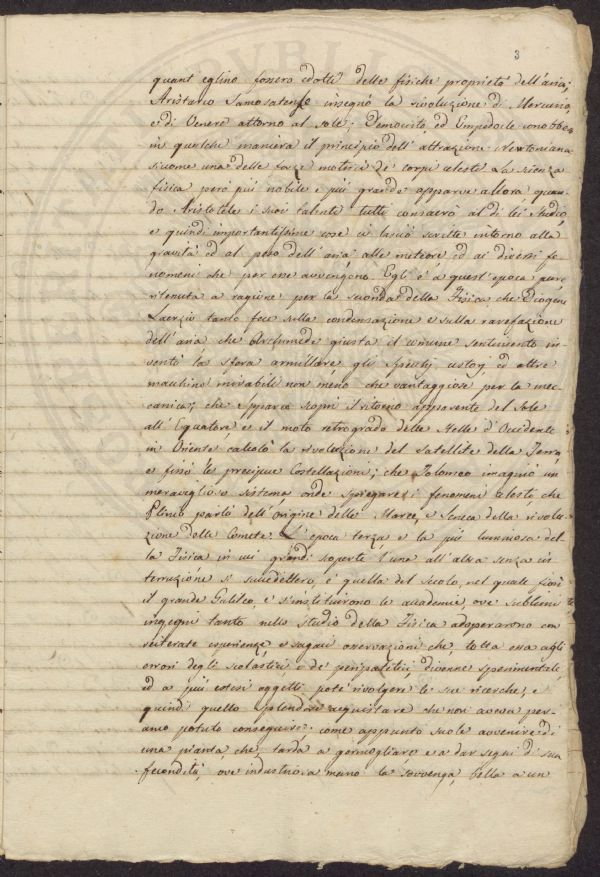 3
quant eglino fossero edotti delle fisiche proprietà dell'aria;
Aristarco Samosatense insegnò la rivoluzione di Mercurio,
e di Venere attorno al Sole; Democrito, ed Empedocle conobbero
in qualche maniera il principio dell'attrazione Newtoniana
siccome una delle forze motrici de' corpi celesti. La scienza
fisica però più nobile e più grande apparve allora, quan-
do Aristotele i suoi talenti tutti consacrò al di lei studio,
e quindi importantissime cose ci lasciò scritte intorno alla
gravità ed al peso dell'aria alle meteore ed ai diversi fe-
nomeni che per esse avvengono. Egli è a quest'epoca pure
ritenuta a ragione per la seconda della Fisica che Diogene
Laerzio tanto fece sulla condensazione e sulla rarefazione
dell'aria che Archimede giusta il comune sentimento in-
ventò la sfera armillare gli Specchj ustorj ed altre
macchine mirabili non meno che vantaggiose per la mec-
canica; che Ipparco scoprì il ritorno apparente del Sole
all'Equatore e il moto retrogrado delle Stelle d'Occidente
in Oriente calcolò la rivoluzione del Satellite della Terra,
e fissò le precipue Costellazioni; che Tolomeo imaginò un
meraviglioso sistema, onde spiegare i fenomeni celesti, che
Plinio parlò dell'origine delle Maree, e Seneca della rivolu-
zione delle Comete. L'epoca terza e la più luminosa del-
la Fisica in cui grandi scoperte l'una all'altra senza in-
terruzione si succedettero, è quella del secolo, nel quale fiorì
il grande Galileo, e s'instituirono le accademie, ove sublimi
ingegni tanto nello studio della Fisica adoperarono con
reiterate esperienze, e sagaci osservazioni che, tolta essa agli
errori degli Scolastici, e de' peripatetici, divenne sperimentale
ed a più estesi oggetti potè rivolgere le sue ricerche, e
quindi quello splendore acquistare che non aveva per-
anco potuto conseguire: come appunto suole avvenire di
una pianta, che tarda a germogliare e a dar segni di sua
fecondità, ove industriosa mano la sovvenga, bella a un